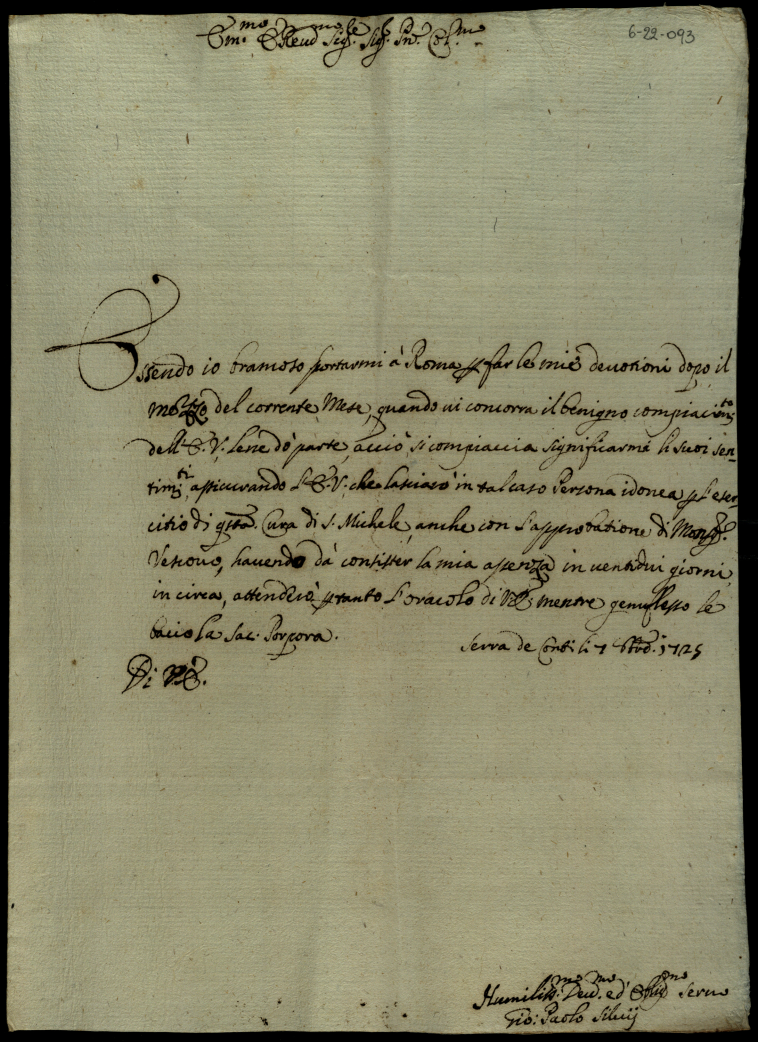 Em.mo e Reud.mo Sig.re Sig.r Pn.e Col.mo
6-22-093
Essendo io bramoso portarmi à Roma p far le mie devotioni dopo il
mezzo del corrente Mese, quando ui concorra il benigno compiacim.to
dell'E.V. Le ne dò parte, acciò si compiaccia significarme li suoi sen-
tim.ti, assicurando L'E.V. che lasciarò in tal caso Persona idonea p l'eser-
citio di q.sta Cura di S. Michele, anche con l'approbatione di Mons.r
Vescovo, havendo dà consister la mia assenza in ventidui giorni
in circa, attenderò p tanto l'oracolo di V.E. mentre genuflesso le
bacio la Sac. Porpora.
Serra de Conti li 7 1725
Di V.E.
Humiliss.mo Deu.mo ed Seruo
Gio: Paolo Siluij